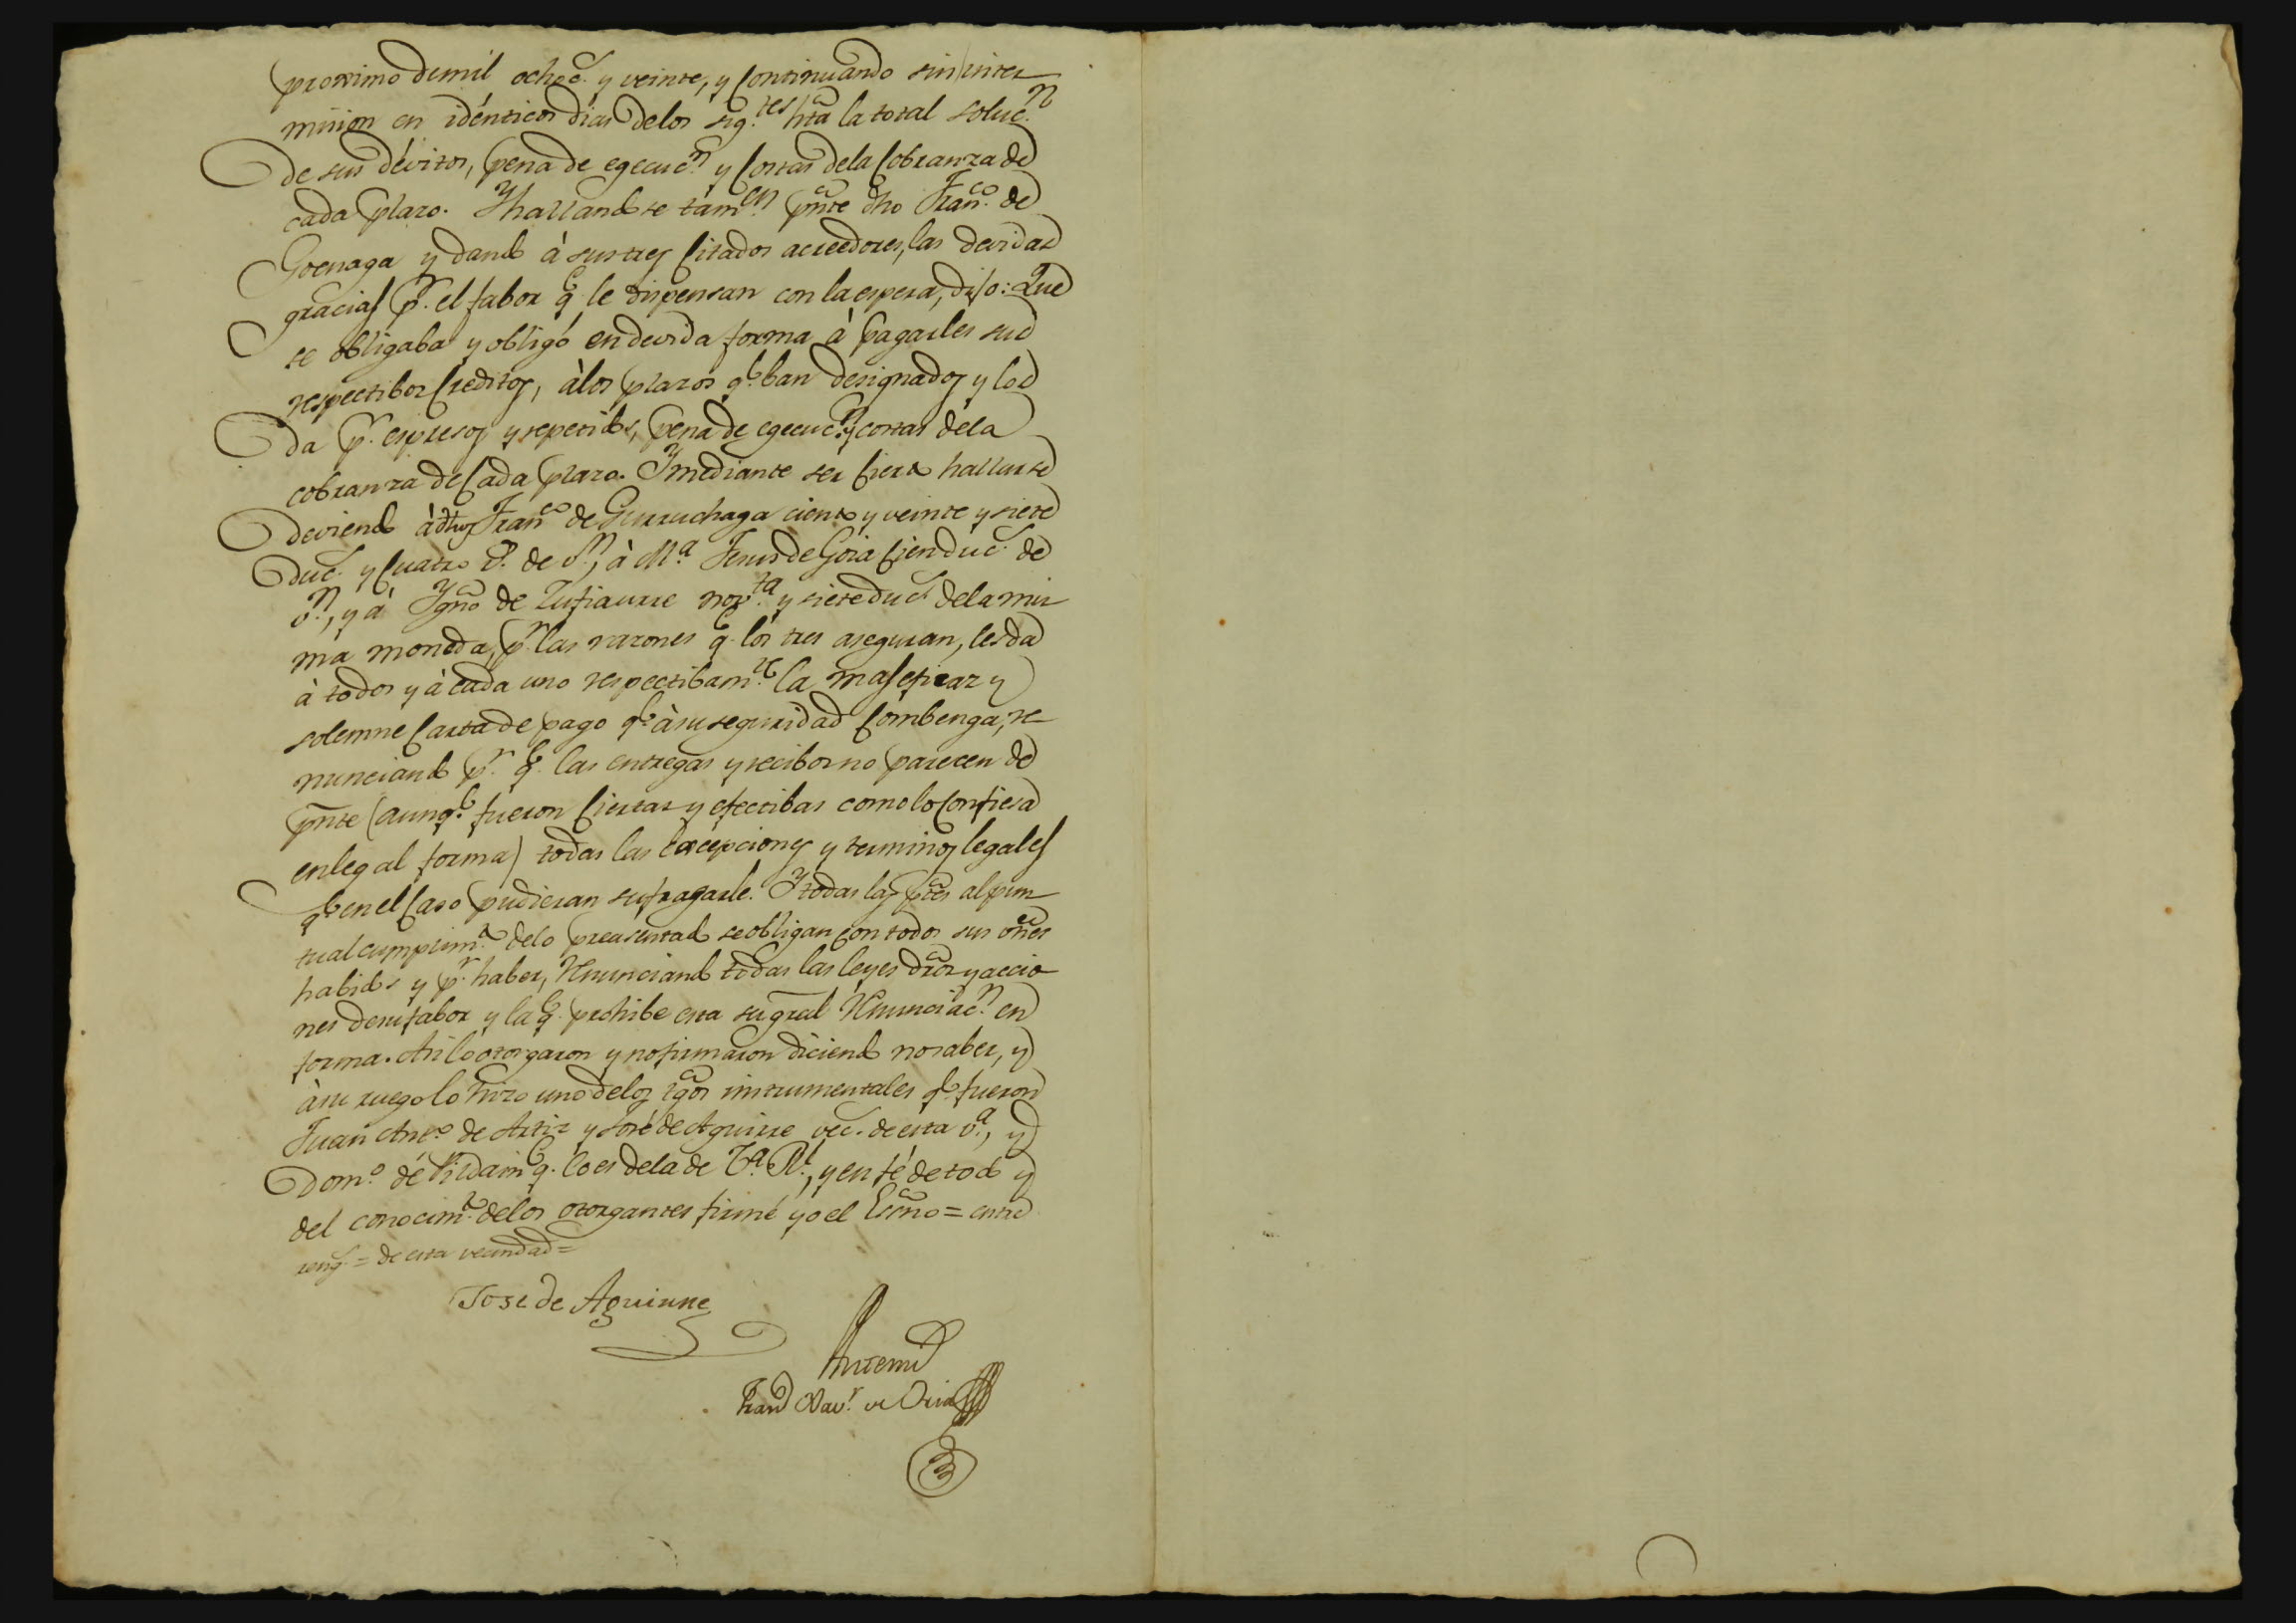 proximo demil ochoc.s y veinte, y Continuando sin inter
mision en idénticos dias delos sig.tes hta la total soluc.n
de sus dévitos, pena de egecuc.n y Costas dela Cobranza de
cada plazo. Y hallandose tam.en pnte dho Fran.co de
Goenaga y dando à sus tres Citados acreedores, las devidas
gracias p.r el fabor q.e le dispensan con la espera, dijo: Que
se obligaba y obligó en devida forma à pagarles sus
respectibos Creditos, àlos plazos q.e ban designados y los
da p.r espresos y repetidos, pena de egecuc.n y costas dela
cobranza de Cada plazo. Y mediante ser Cierto hallarse
deviendo à dhos Fran.co de Gurruchaga ciento y veinte y siete
duc.s y Cuatro r.s de v.n, à M.a Jesus de Goia Cien duc.s de
v.n, y à Ygno de Zufiaurre nov.ta y siete duc.s dela mis
ma moneda, p.r las razones q.e los tres aseguran, les da
à todos y à cada uno respectibam.te la mas eficaz y
solemne Carta de pago q.e à su seguridad Combenga, re
nunciando p.r q.e las entregas y recibos no parecen de
pnte (aunq.e fueron Ciertas y efectibas como lo Confiesa
en legal forma) todas las excepciones y terminos legales
q.e en el Caso pudieran sufragarle. Y todas las ptes al pun
tual cumplim.to delo preasentado se obligan con todos sus vnes
habidos y p.r haber, Renunciando todas las leyes dros y accio
nes de su fabor y la q.e prohibe esta su gral Renunciac.n en
forma. Asi lo otorgaron y no firmaron diciendo no saber, y
à su ruego lo hizo uno delos tgos instrumentales q.e fueron
Juan Ant.o de Artiz y José de Aguirre vec.s de esta v.a, y
Dom.o de q.e lo es dela de V.a R.l, y en fé de todo y
del conocim.to delos otorgantes firmé yo el Esno = entre
reng.s = de esta vecindad =
Jose de Aguirre
Antemi
Fran.co Xav.r de Oria